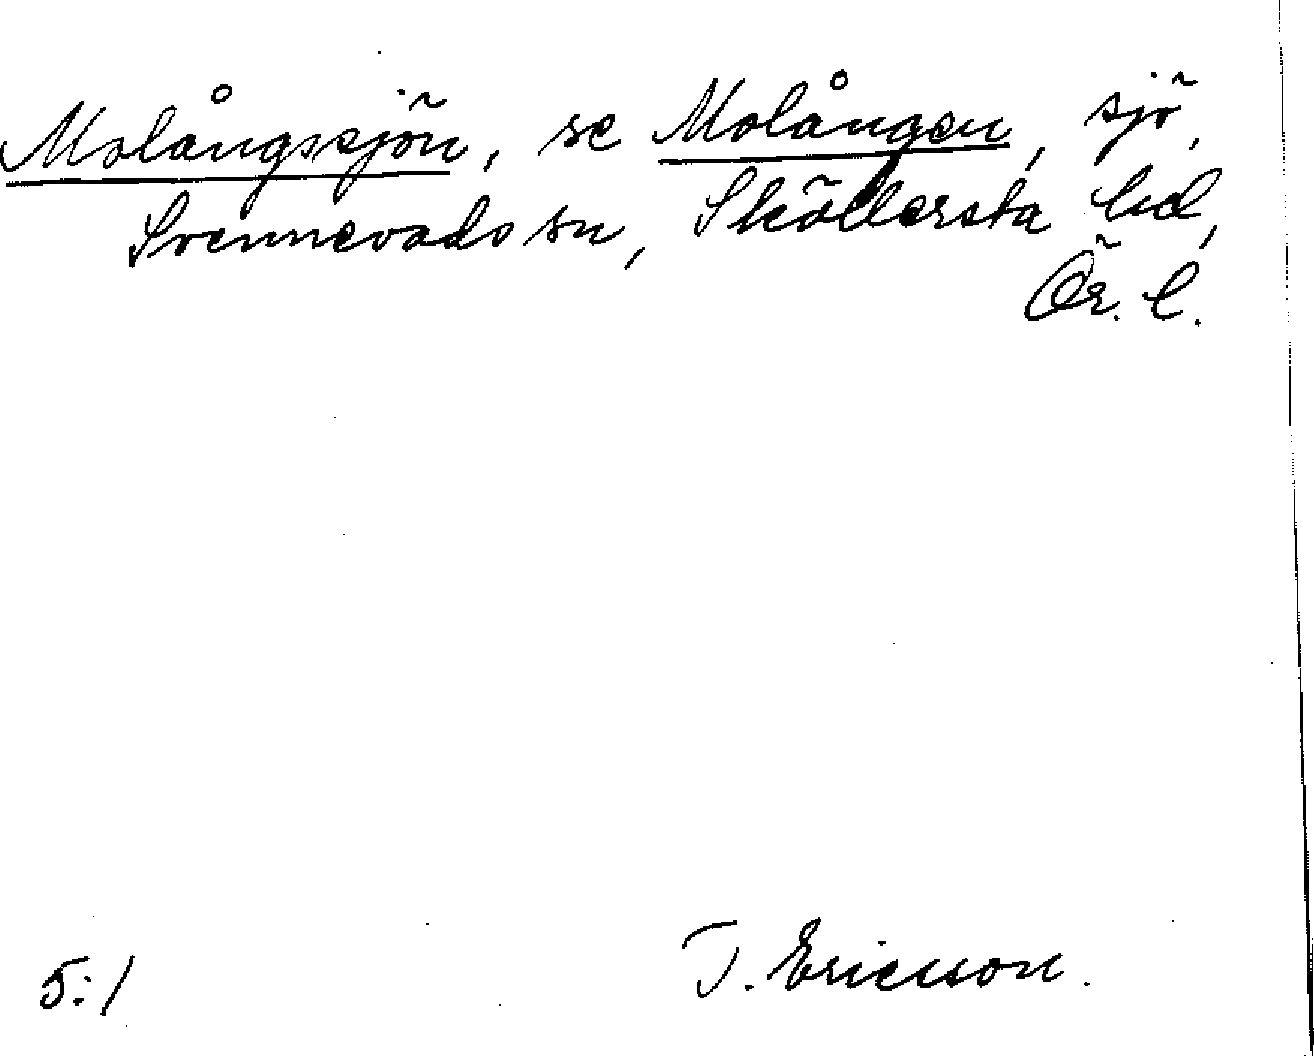 Molångssjön, se Molången, sjö,
Svennevads sn, Sköllersta hd,
Ör. l.
5:1 T. Ericsson.